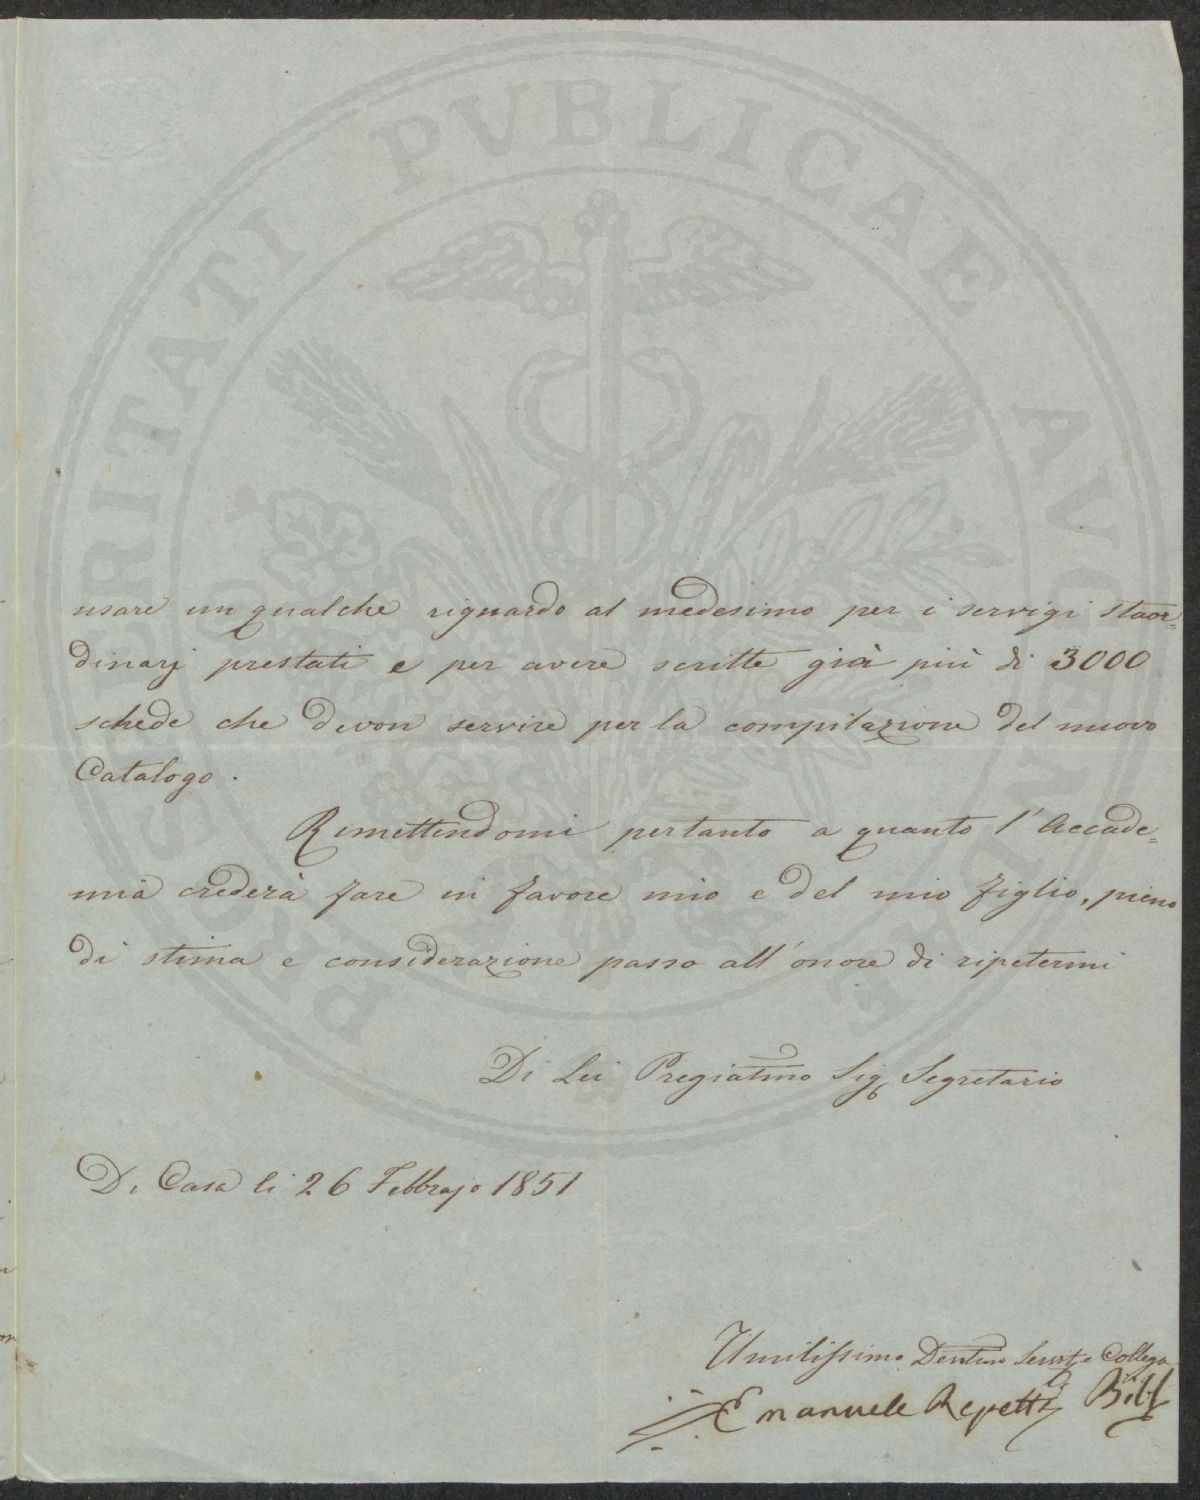 usare un qualche riguardo al medesimo per i servigi staor=
dinarj prestati e per avere scritte già più di 3000
schede che devon servire per la compilazione del nuovo
Catalogo.
Rimettendomi pertanto a quanto l'Accade=
mia crederà fare in favore mio e del mio figlio, pieno
di stima e considerazione passo all'onore di ripetermi
Di Lei Pregiatmo Sig Segretario
Di Casa li 26 Febbrajo 1851
Umilissimo Devtmo Servt e Collega
Emanuele Repetti Bibl
PROSPERITATI PVBLICAE AVGENDAE